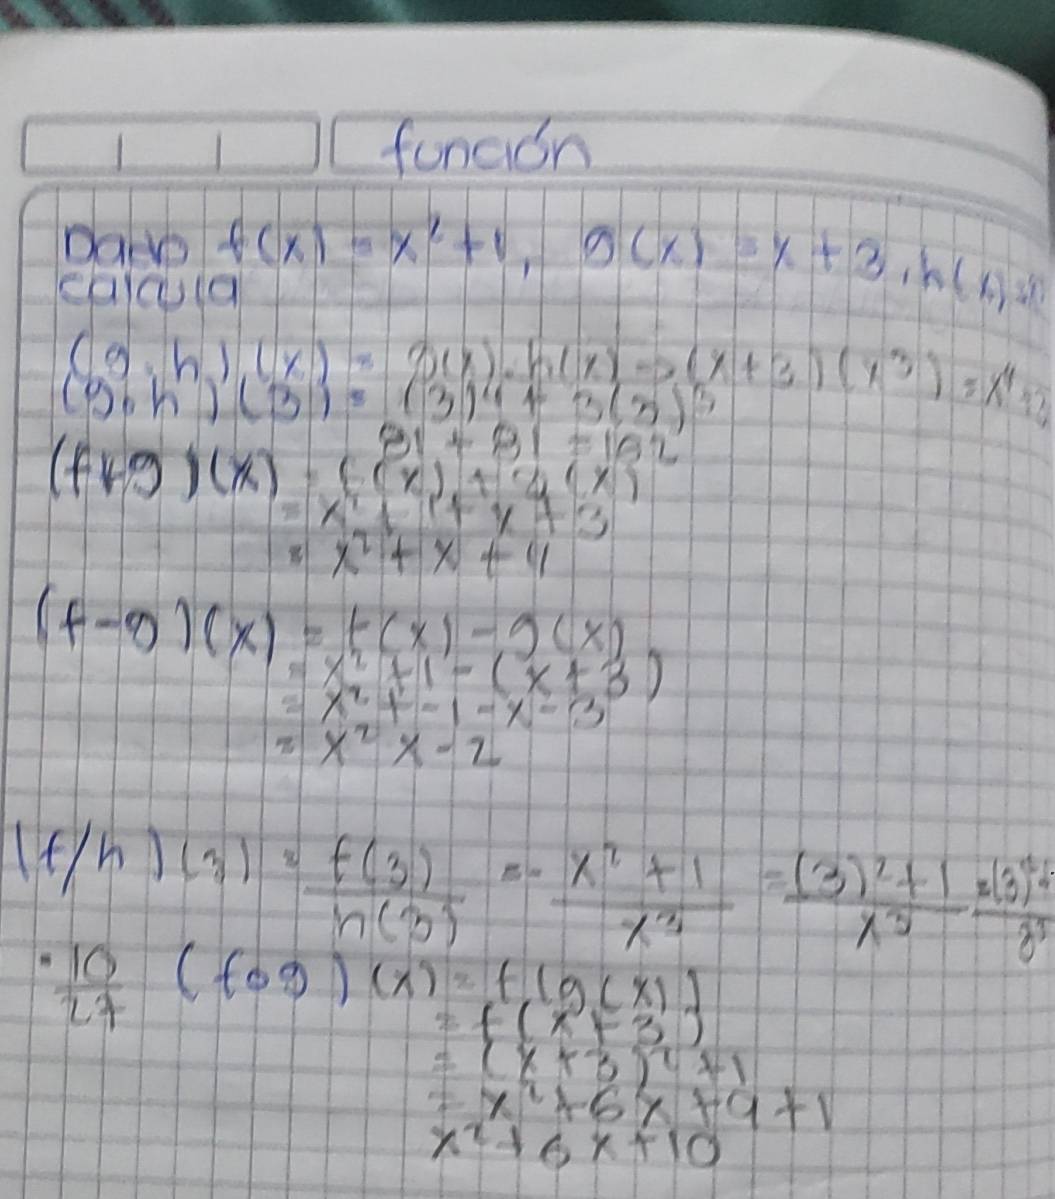 función
Dano f(x) = x² + 1, g(x) = x + 3, h(x)
calcula
(g.h)(x) = g(x).h(x) = (x+3)(x³) = x⁴+3
(g.h)(3) = (3)4 + 3(3)³
81 + 81 = 162
(f+g)(x) = f(x) + g(x)
= x² + 1 + x + 3
= x² + x + 4
(f-g)(x) = f(x) - g(x)
= x² + 1 - (x + 3)
= x² + - 1 - x - 3
= x² x - 2
(f/h)(3) = f(3)/h(3) = - x² + 1/x³ = (3)² + 1/x³ = (3)²
10/27 (fog)(x) = f(g(x))
= f(x + 3)
= (x + 3)² + 1
= x² + 6x + 9 + 1
x² + 6x + 10